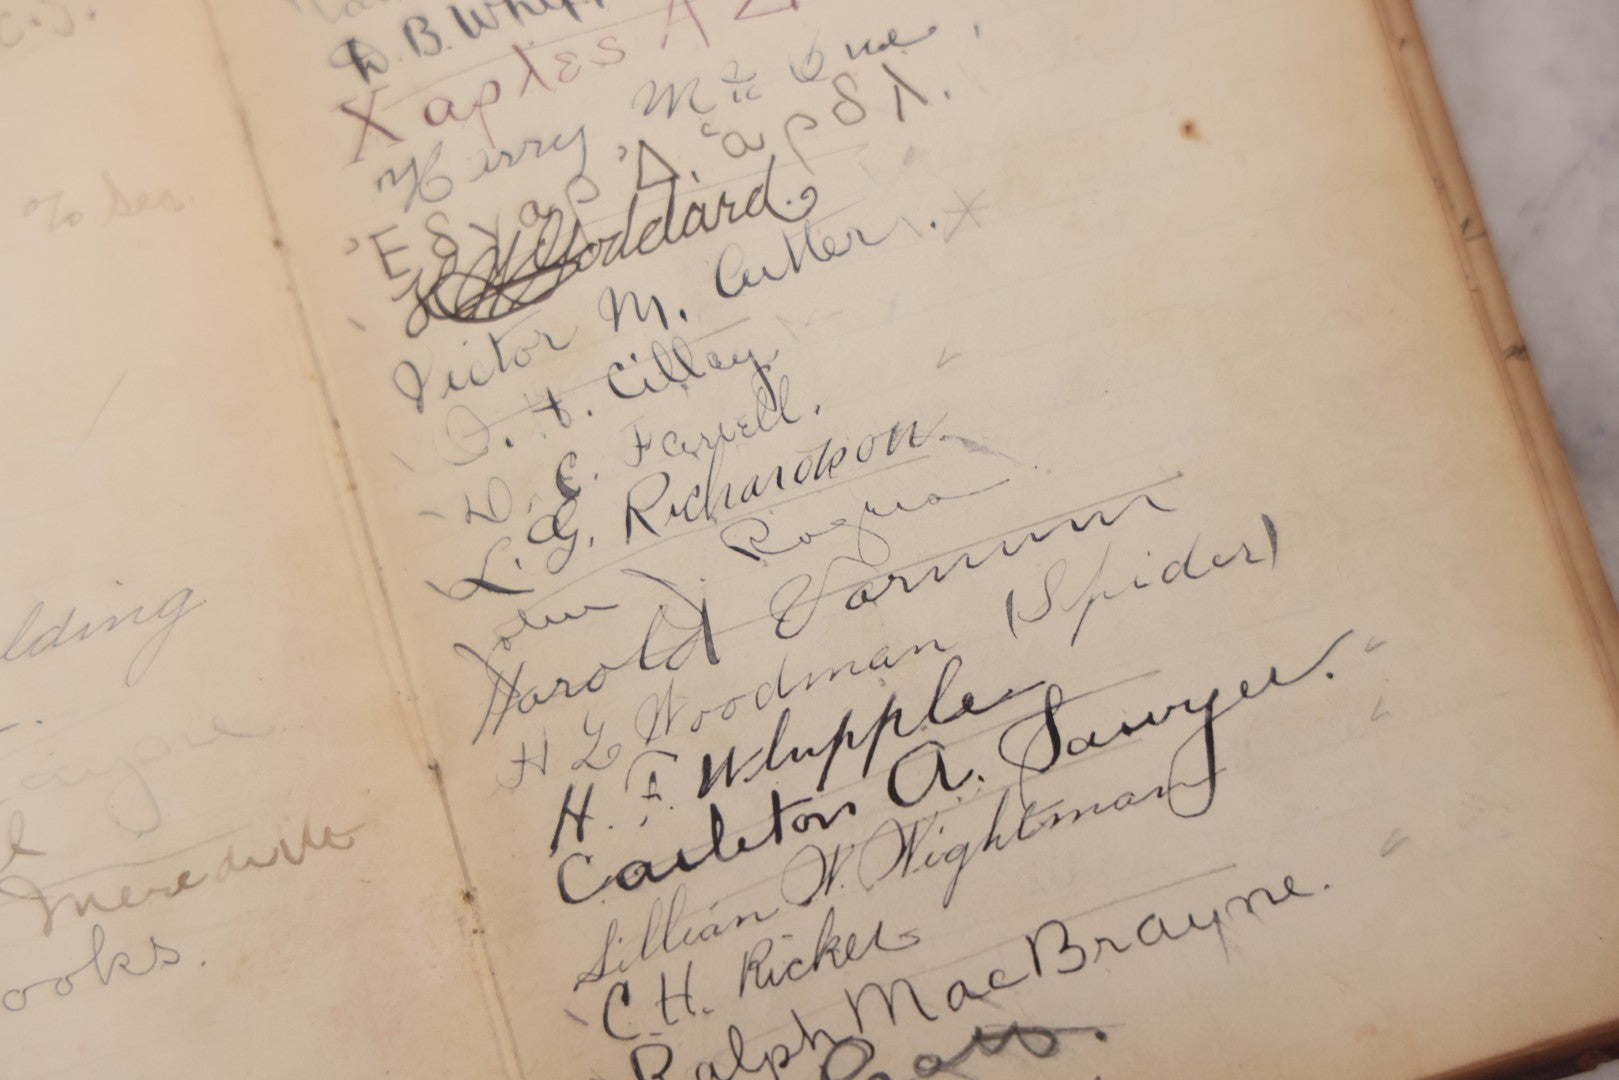 % Sec.
lding
Meredith
ooks.
D. B. Whipp
Χαρλες Λ
Harry Mc One
'Εδγαρ Δ. 'αρδλ.
Goddard.
Victor M. Cutter.
Cilley
D. E. Farrell.
L. G. Richardson.
John J. Rogua
Harold Varnum
H L Woodman (Spider)
H. F. Whipple
Carleton A. Sawyer.
Lillian W. Wightman
C. H. Ricker
Ralph MacBrayne.